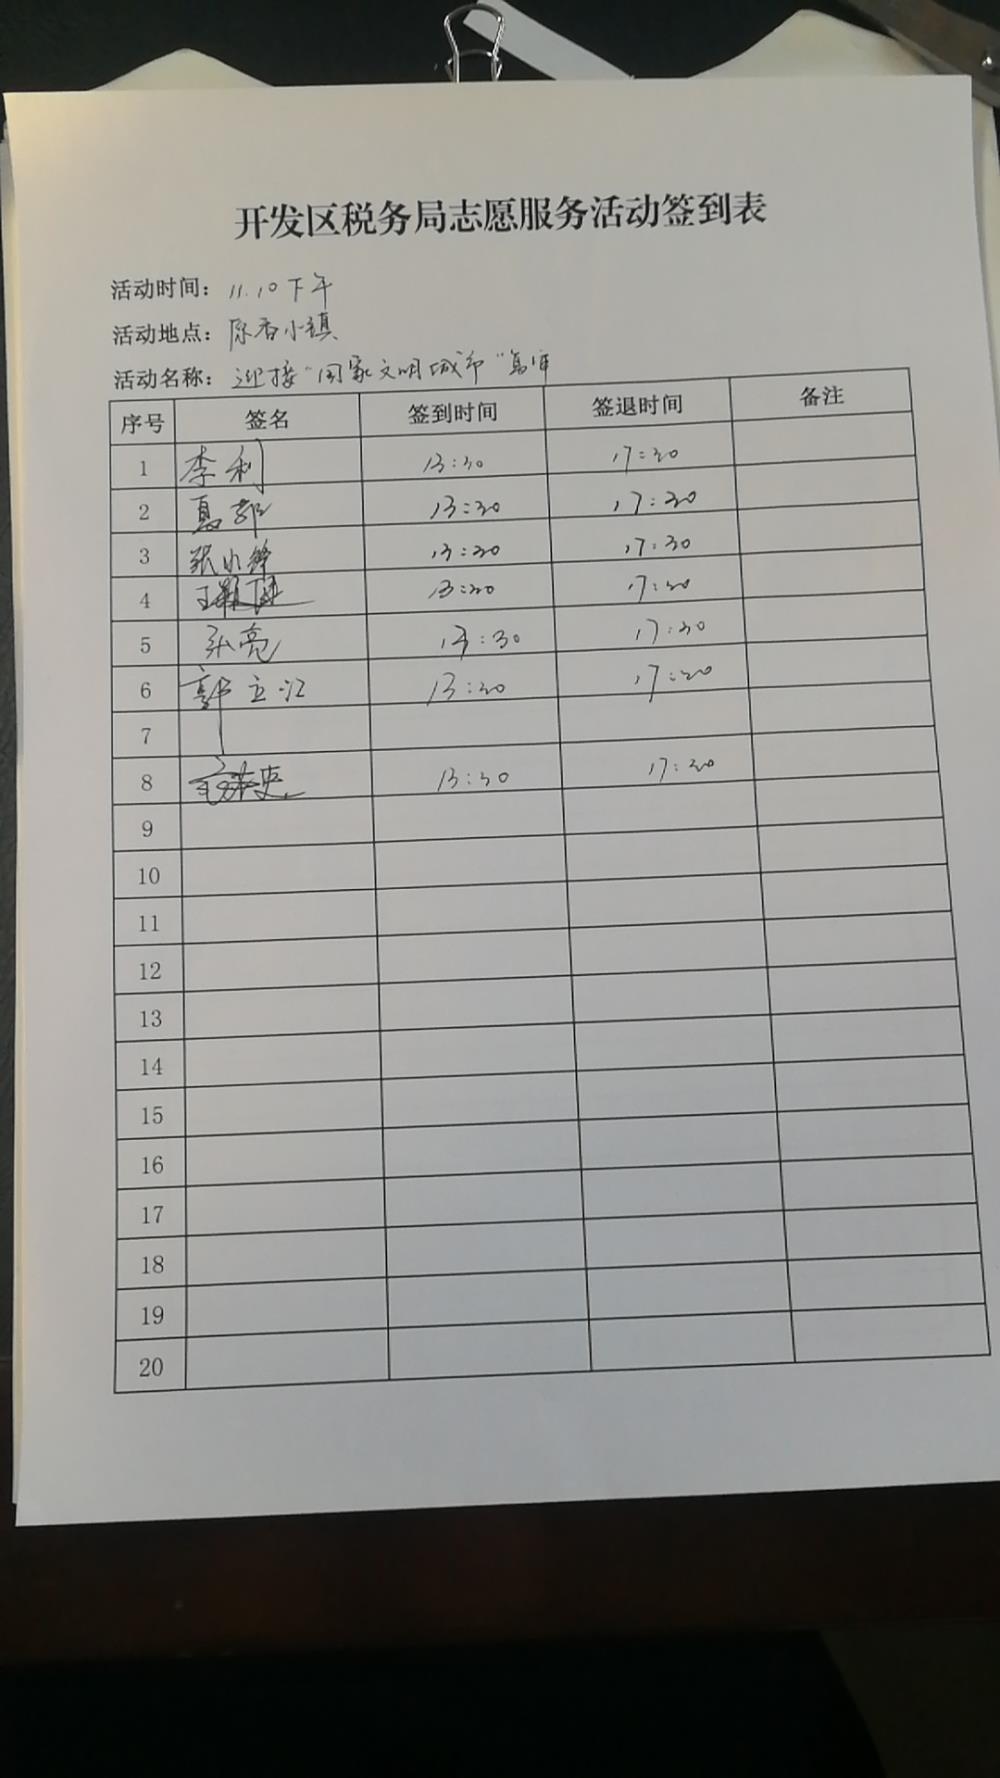 开发区税务局志愿服务活动签到表
活动时间：11.10下午
活动地点：原香小镇
活动名称：迎接"国家文明城市"复审
序号 签名 签到时间 签退时间 备注
1 李利 13:30 17:30
2 13:30 17:30
3 张小锋 13:30 17:30
4 王 13:30 17:30
5 张亮 13:30 17:30
6 郭立江 13:30 17:30
7
8 13:30 17:30
9
10
11
12
13
14
15
16
17
18
19
20